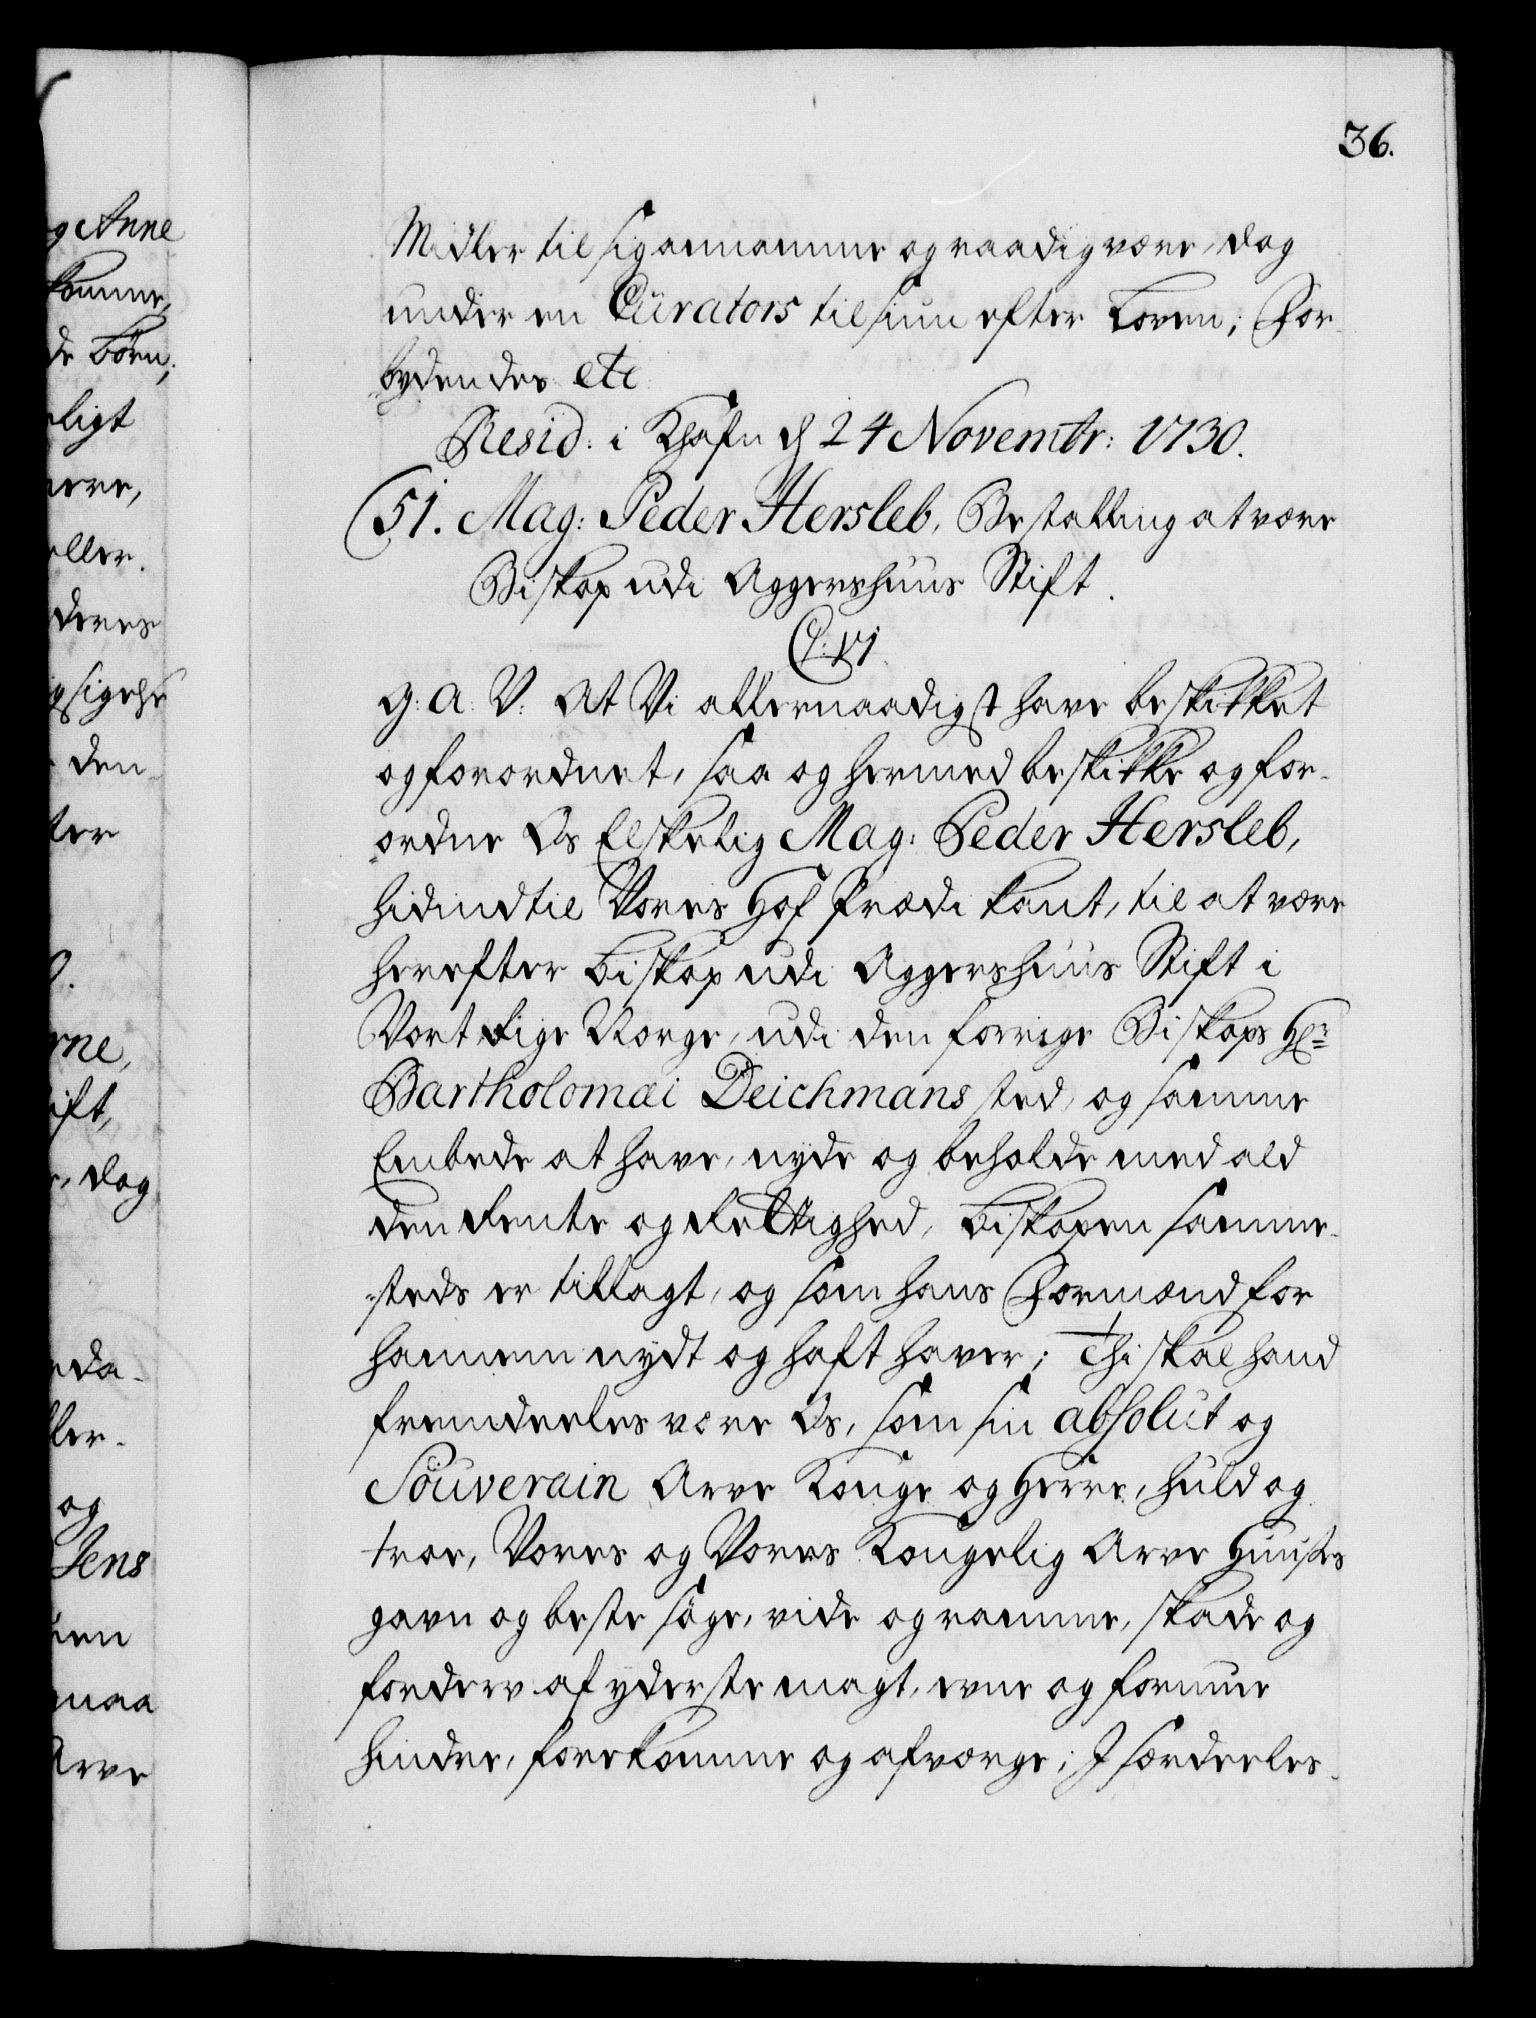 36.
Midler til sig annamme og raadig være, dog
under en Curators tilsiun efter Loven; For-
bydendes etc
Resid: i Khafn d 24 Novembr: 1730.
51. Mag: Peder Hersleb, Bestalling at være
Biskop udi Aggershuus Stift.
C: VI
G: A: V: At Vi allernaadigst have beskikket
og forordnet, saa og hermed beskikke og for-
ordne Os Elskelig Mag: Peder Hersleb,
hidindtil Vores Hof Prædikant, til at være
herefter Biskop udi Aggershuus Stift i
Vort Rige Norge, udi den forrige Biskops Hr
Bartholomæi Deichmans sted, og samme
Embede at have, nyde og beholde med ald
den Rente og Rettighed, Biskopen samme-
steds er tillagt, og som hans Formænd for
hannem nydt og haft haver; Thi skal hand
fremdeeles være Os, som sin absolut og
Souverain Arve Konge og Herre, huld og
troe, Vores og Vores Kongelig Arve Huuses
gavn og beste søge, vide og ramme, skade og
forderv af yderste magt, evne og formue
hindre, forekomme og afværge; J særdeeles-
g Anne
komme,
de Børn;
ligt
eller.
deres
den-
ter
rne,
ift,
dog
ler-
og
Jens
maa
Arve